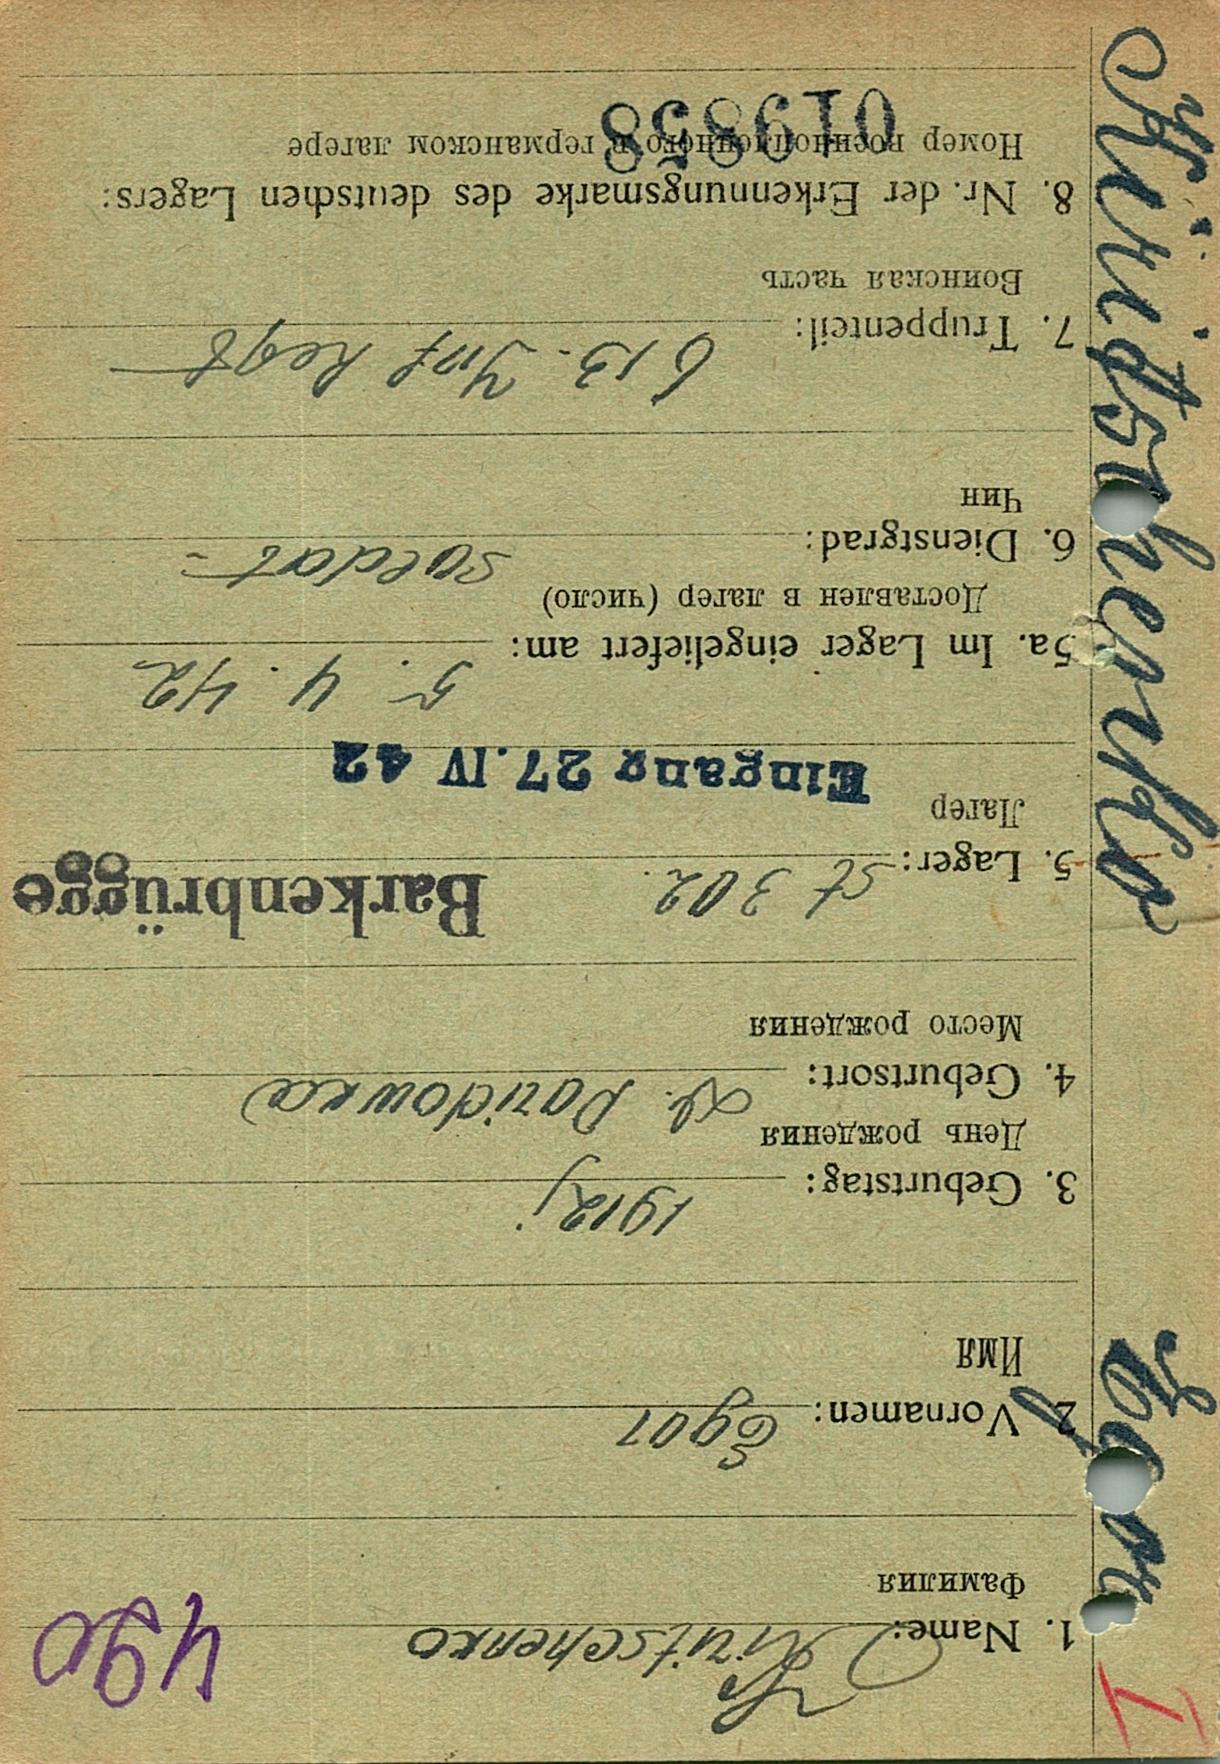 I
490
1. Name: Kiritschenko
Фамилия
2. Vornamen: Egor
Имя
3. Geburtstag: 1912j.
День рождения
4. Geburtsort: D. Davidowka
Место рождения
5. Lager: St 302. Barkenbrügge
Лагер
Eingang 27. IV 42
5a. Im Lager eingeliefert am: 5. 4. 42
Доставлен в лагер (число)
6. Dienstgrad: Soldat -
Чин
7. Truppenteil: 613. Inf Regt
Воинская часть
8. Nr. der Erkennungsmarke des deutschen Lagers:
Номер военнопленного в германском лагере
019858
Kiritschenko Egor